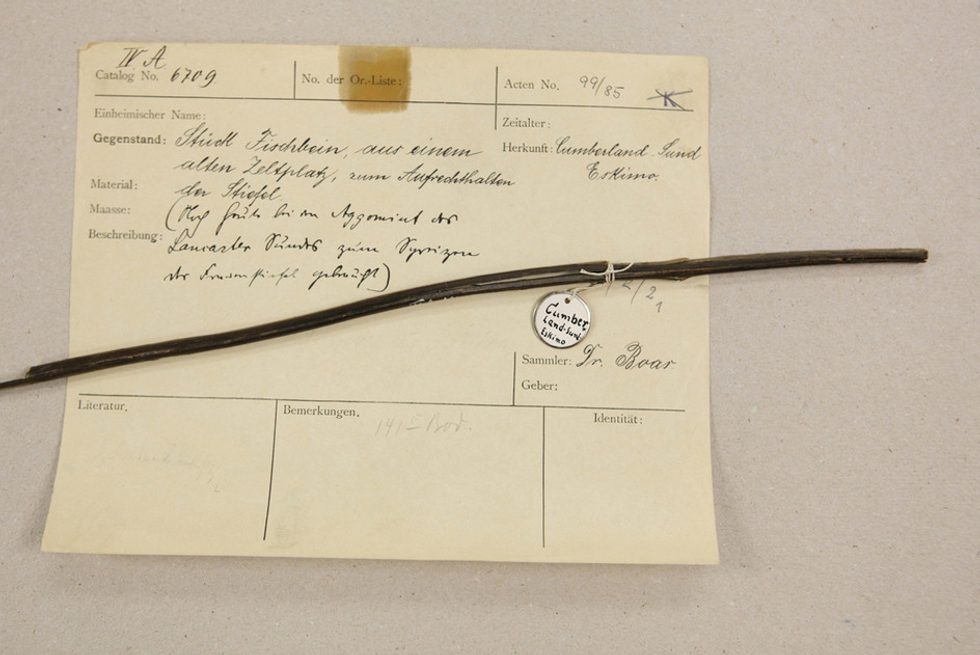 IV A.
Catalog No. 6709
No. der Or.-Liste:
Acten No. 99/85
K
Einheimischer Name:
Zeitalter:
Gegenstand: Stück Fischbein, aus einem
alten Zeltplatz, zum Aufrechthalten
der Stiefel
Herkunft: Cumberland-Sund
Eskimo.
Material:
Maasse: (Noch heute bei den Aggomiut des
Beschreibung: Lancaster Sundes zum Spreizen
der Frauenstiefel gebraucht)
Cumber
land-Sund
Eskimo
Sammler: Dr. Boas
Geber:
Literatur.
Bemerkungen.
Identität: